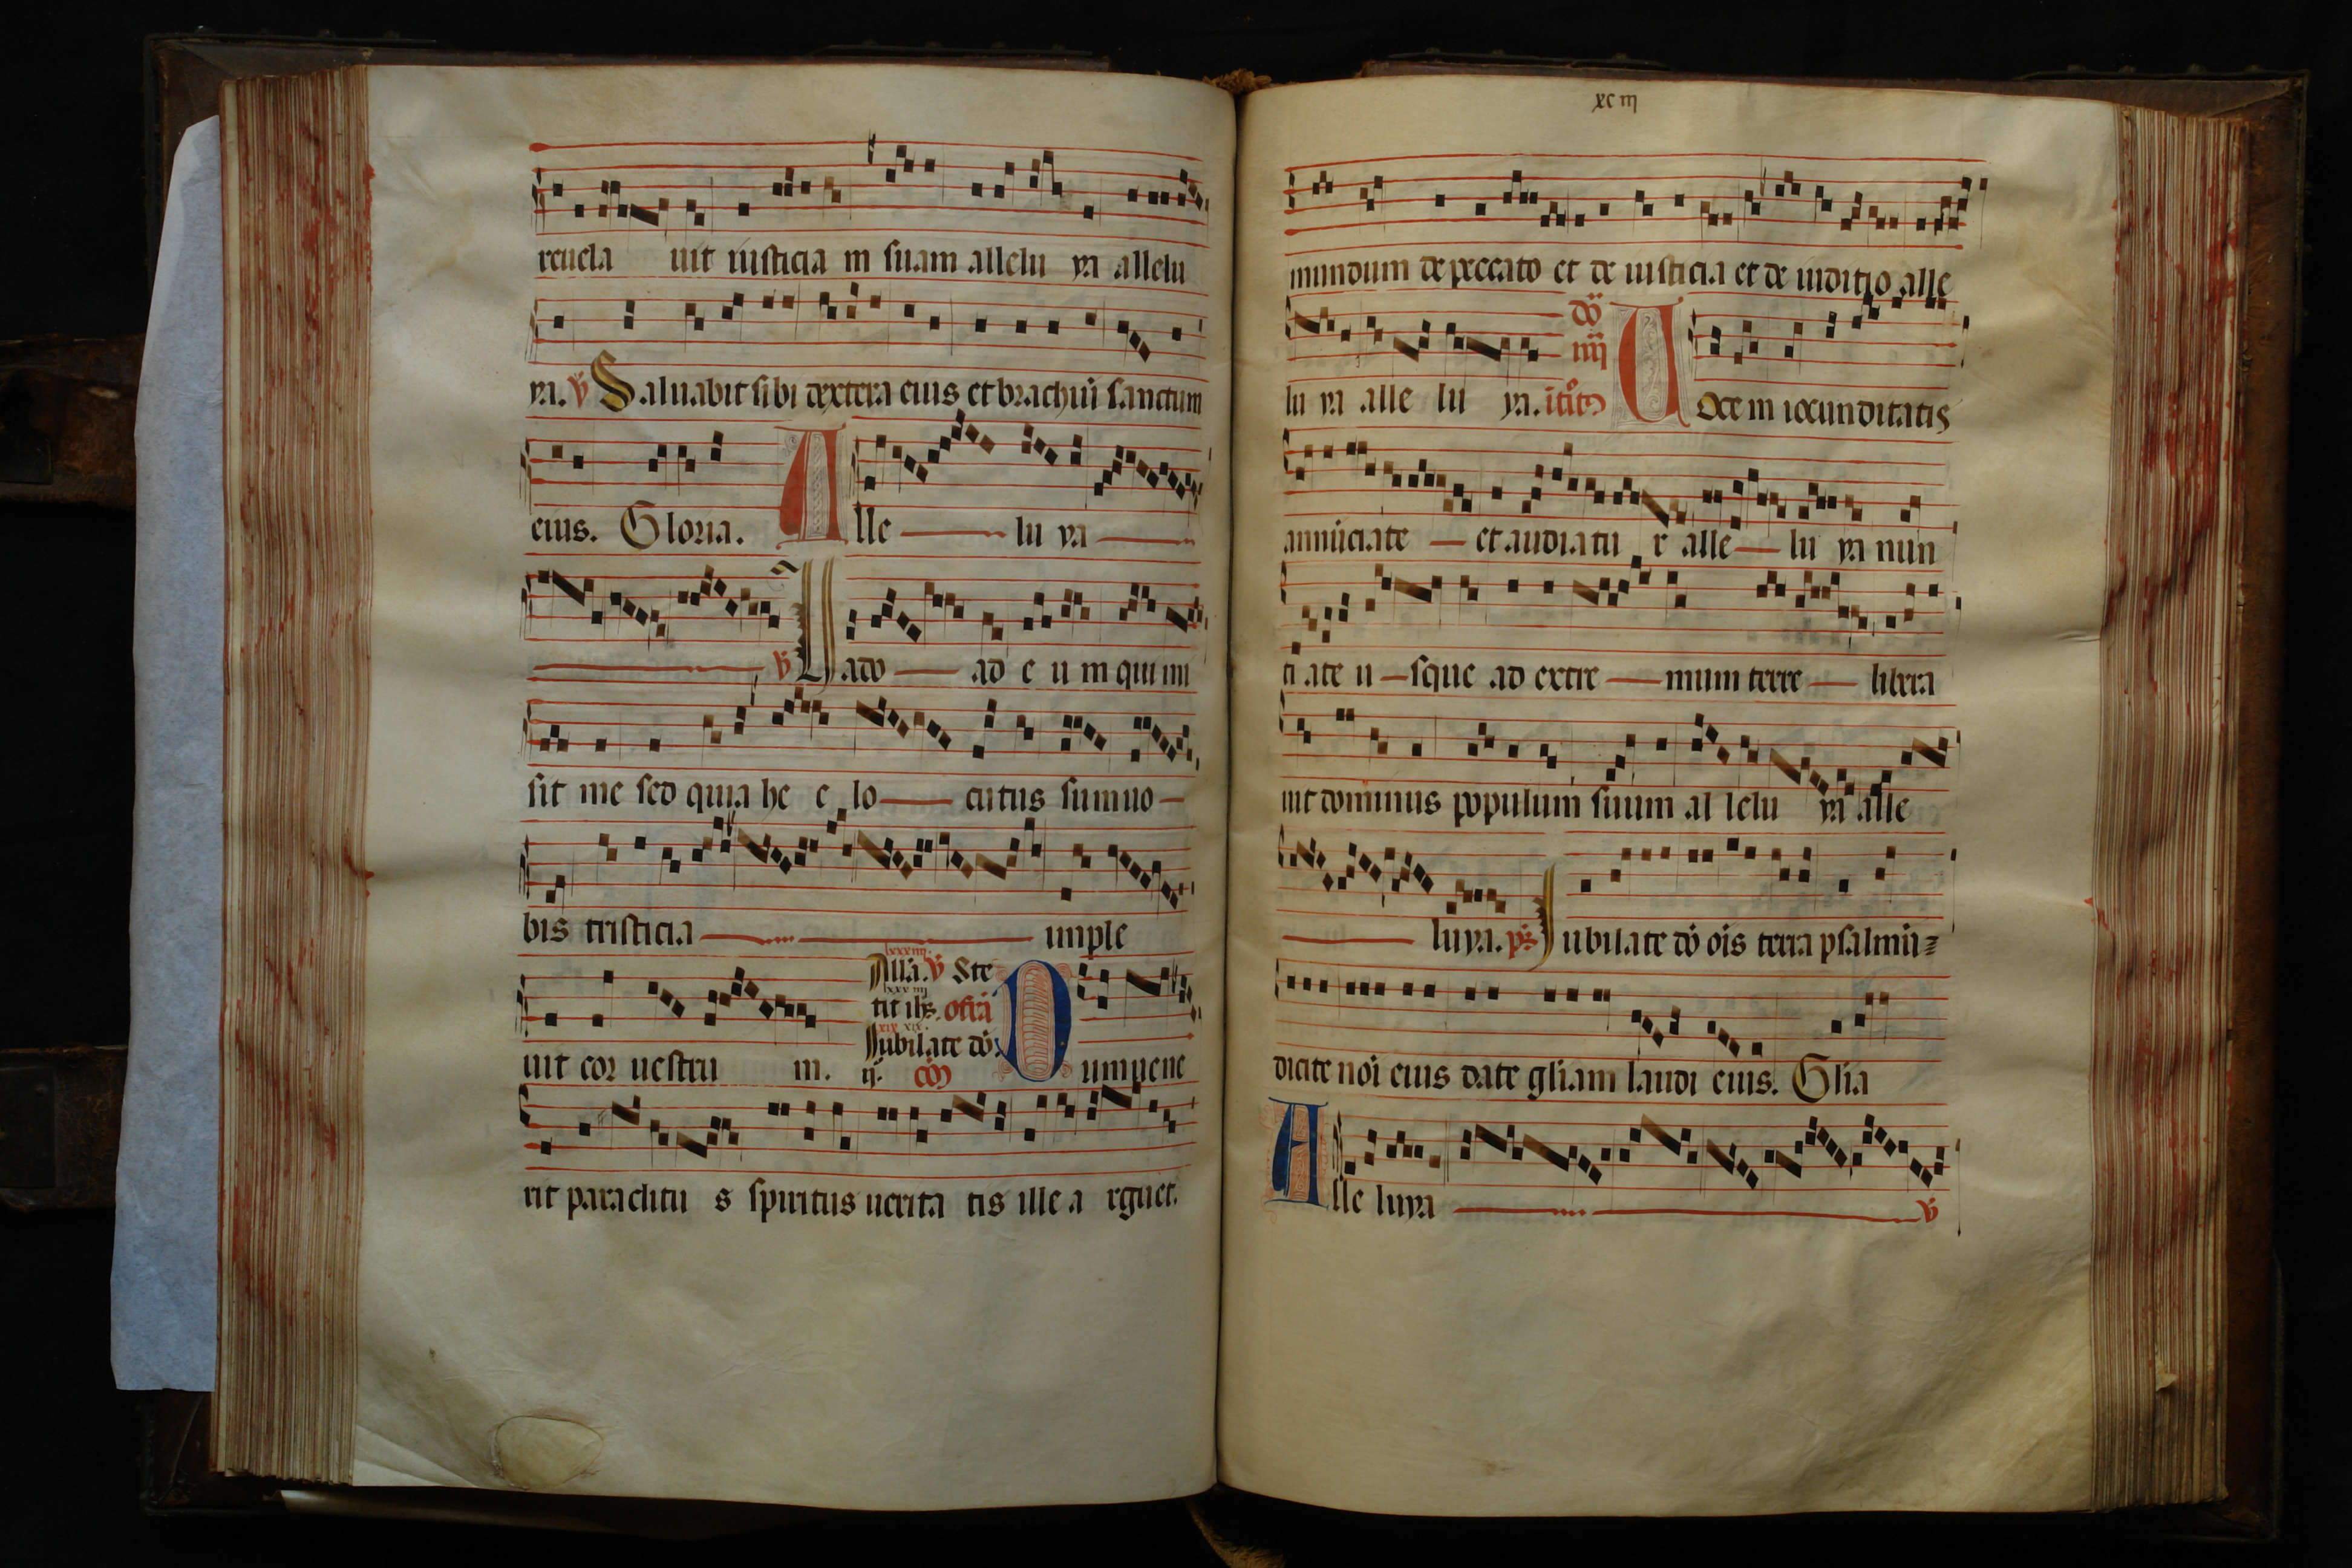 reuela uit iusticia m suam allelu ya allelu
ya. v̄ Saluabit sibi dextera eius et brachiū sanctum
eius. Gloria. Alle lu ya
v̄ Uado ad e u m qui mi
sit me sed quia he c lo cutus sum uo
bis tristicia imple
lxxxiiij.
Allā. v̄ Ste
lxxxiiij
tit ihs. offā
xix xix.
Iubilate dō.
uit cor uestru m. ij. cōm Dum uene
rit paraclitu s spiritus uerita tis ille a rguet.
xciij
mundum de peccato et de iusticia et de iuditio alle
dō
iiij
lu ya alle lu ya. itōm Uocem iocunditatis
annūciate et audiatu r alle lu ya nun
ti ate u sque ad extre mum terre libera
uit dominus populum suum al lelu ya alle
luya. ps Iubilate dō oīs terra psalmū
dicite noī eius date gliam laudi eius. Glia
Alle luya v̄